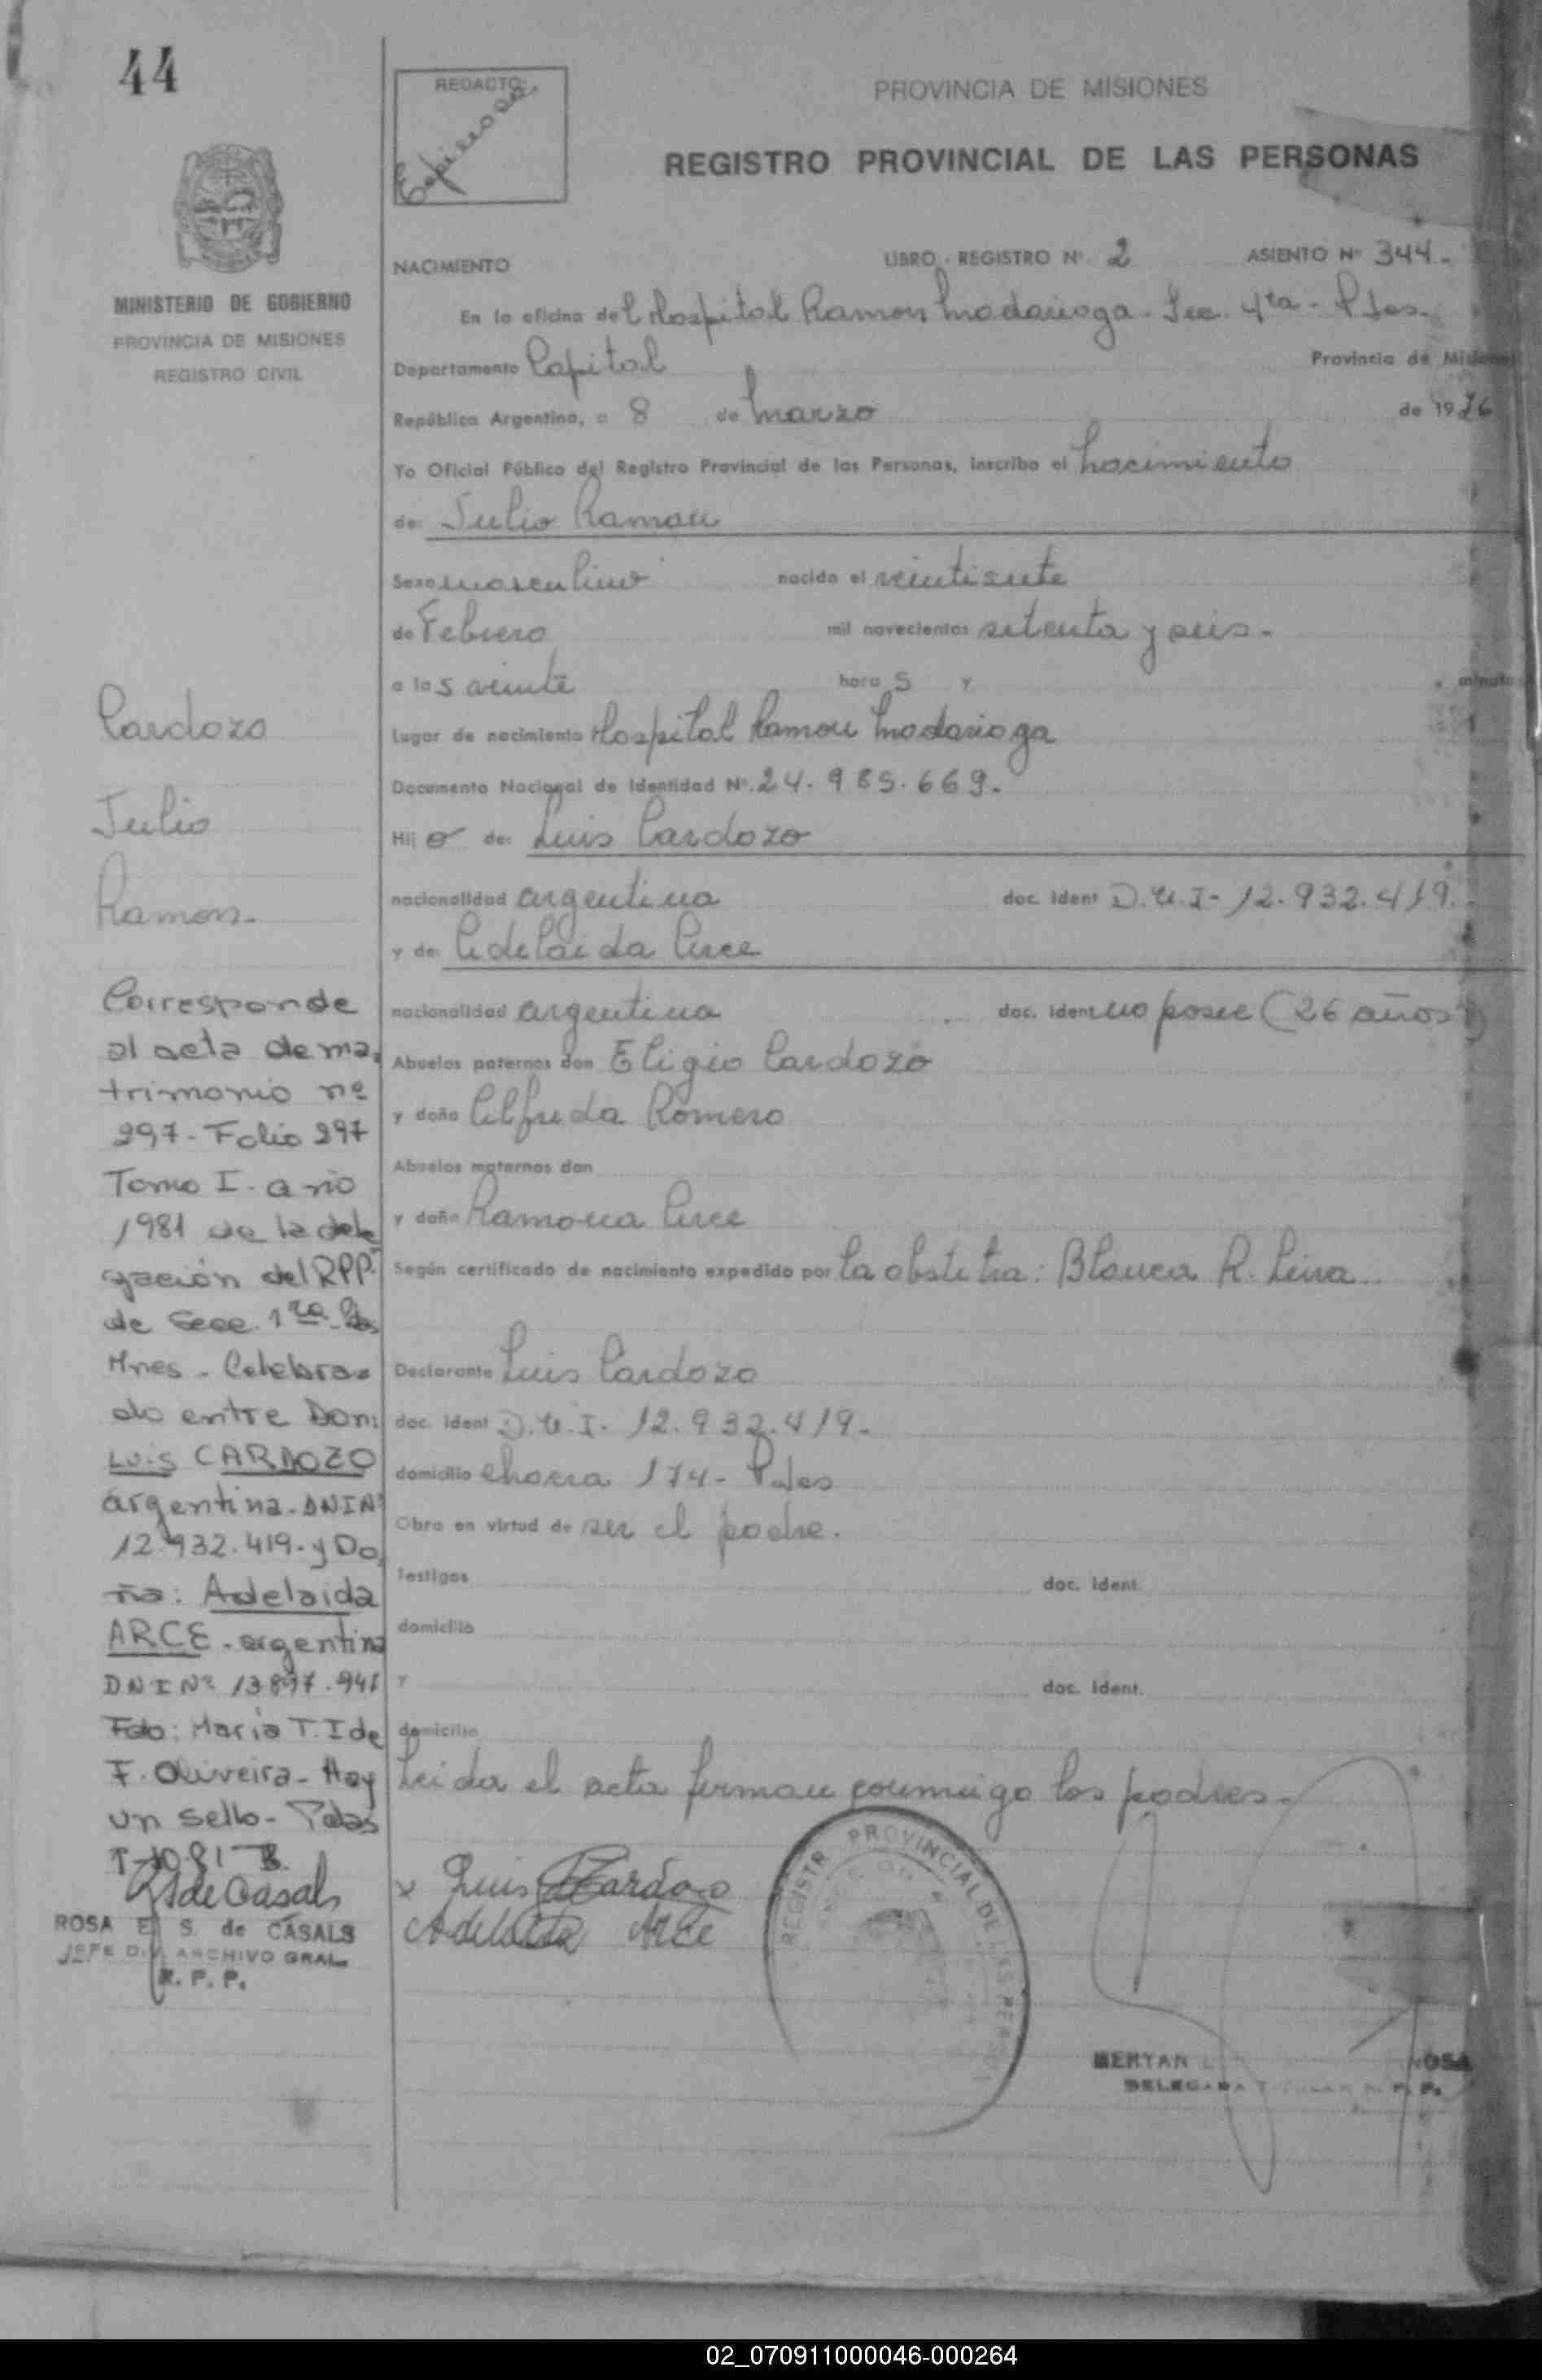 44
REDACTO:
Espinosa
PROVINCIA DE MISIONES
REGISTRO PROVINCIAL DE LAS PERSONAS
MINISTERIO DE GOBIERNO
PROVINCIA DE MISIONES
REGISTRO CIVIL
NACIMIENTO LIBRO - REGISTRO Nº 2 ASIENTO Nº 344.-
En la oficina del Hospital Ramon Madariaga - Sec. 4ta - Pdas.
Departamento Capital Provincia de Misiones
República Argentina, a 8 de Marzo de 1976
Yo Oficial Público del Registro Provincial de las Personas, inscribo el nacimiento
de: Julio Ramon
Sexo masculino nacido el veintisiete
de Febrero mil novecientos setenta y seis.-
a las veinte horas y minutos
Lugar de nacimiento Hospital Ramon Madariaga
Documento Nacional de Identidad Nº. 24.985.669.-
Hijo de: Luis Cardozo
nacionalidad argentina doc. ident D.N.I- 12.932.419.
y de: Adelaida Arce
nacionalidad argentina doc. ident no posee (26 años)
Abuelos paternos don Eligio Cardozo
y doña Elfrida Romero
Abuelos maternos don
y doña Ramona Arce
Según certificado de nacimiento expedido por la obstetra: Blanca R. Leiva.
Declarante Luis Cardozo
doc. ident D.N.I. 12.932.419.-
domicilio chacra 174- Pdas
Obra en virtud de ser el padre.
testigos doc. ident.
domicilio
y doc. ident.
domicilio
Leida el acta firman conmigo los padres.-
x Luis Cardozo
Adelaida Arce
REGISTRO PROVINCIAL DE LAS PERSONAS
MERYAN NOSA
DELEGADA TITULAR R. P. P.
Cardozo
Julio
Ramon.-
Corresponde
al acta de ma.
trimonio nº
297- Folio 297
Tomo I- año
1981 de la dele
gación del RPP.
de Secc. 1ra Pdas
Mnes - Celebra=
do entre Don:
Luis CARDOZO
argentina - DNI Nº
12.932.419- y Do
ña: Adelaida
ARCE - argentina
DNI Nº 13897.941
Fdo: Maria T. I de
F. Oliveira - Hay
un sello- Pdas
ROSA E. S. de CASALS
JEFE DIV. ARCHIVO GRAL.
R. P. P.
02_070911000046-000264